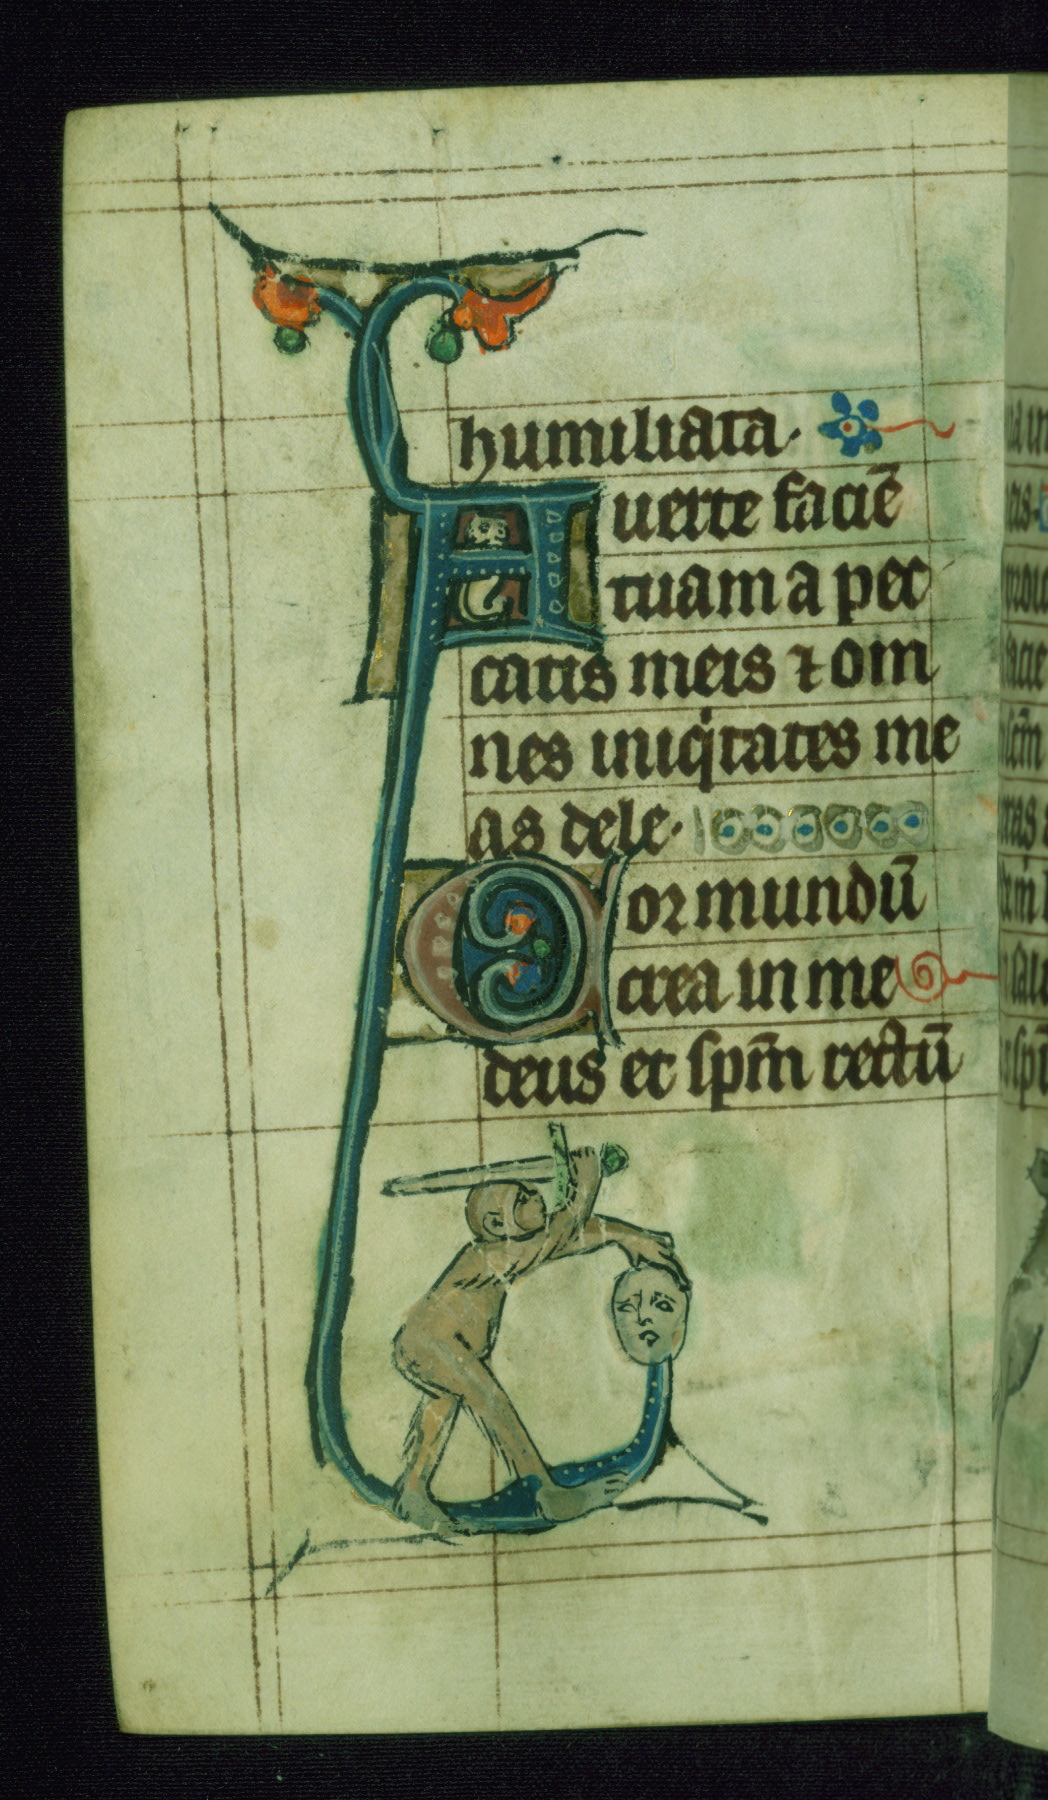 humiliata.
Auerte faciē
tuam a pec
catis meis ⁊ om
nes iniqͥtates me
as dele.
Cor mundū
crea in me
deus et spm̄ rectū